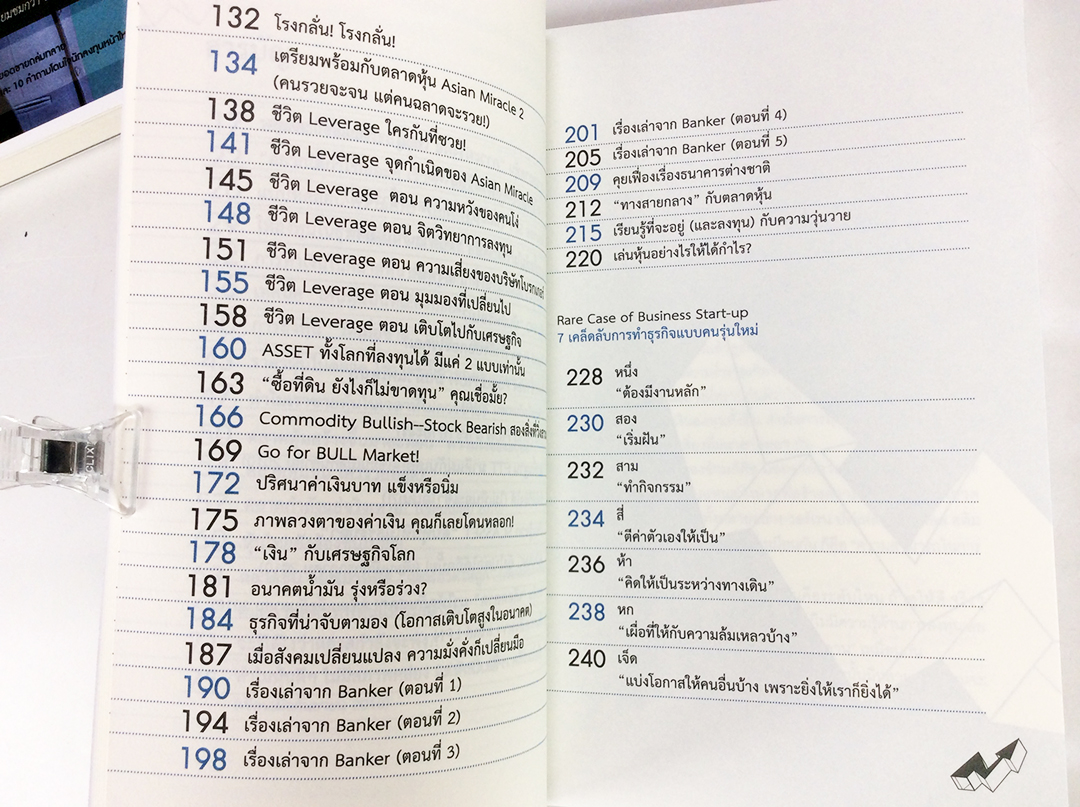 ยอดขายถล่มทลาย
10 คำถามโดนใจนักลงทุนหน้าใหม่
132 โรงกลั่น! โรงกลั่น!
134 เตรียมพร้อมกับตลาดหุ้น Asian Miracle 2
(คนรวยจะจน แต่คนฉลาดจะรวย!)
138 ชีวิต Leverage ใครกันที่ซวย!
141 ชีวิต Leverage จุดกำเนิดของ Asian Miracle
145 ชีวิต Leverage ตอน ความหวังของคนโง่
148 ชีวิต Leverage ตอน จิตวิทยาการลงทุน
151 ชีวิต Leverage ตอน ความเสี่ยงของบริษัทโบรกเกอร์
155 ชีวิต Leverage ตอน มุมมองที่เปลี่ยนไป
158 ชีวิต Leverage ตอน เติบโตไปกับเศรษฐกิจ
160 ASSET ทั้งโลกที่ลงทุนได้ มีแค่ 2 แบบเท่านั้น
163 “ซื้อที่ดิน ยังไงก็ไม่ขาดทุน” คุณเชื่อมั้ย?
166 Commodity Bullish--Stock Bearish
169 Go for BULL Market!
172 ปริศนาค่าเงินบาท แข็งหรือนิ่ม
175 ภาพลวงตาของค่าเงิน คุณก็เลยโดนหลอก!
178 “เงิน” กับเศรษฐกิจโลก
181 อนาคตน้ำมัน รุ่งหรือร่วง?
184 ธุรกิจที่น่าจับตามอง (โอกาสเติบโตสูงในอนาคต)
187 เมื่อสังคมเปลี่ยนแปลง ความมั่งคั่งก็เปลี่ยนมือ
190 เรื่องเล่าจาก Banker (ตอนที่ 1)
194 เรื่องเล่าจาก Banker (ตอนที่ 2)
198 เรื่องเล่าจาก Banker (ตอนที่ 3)
201 เรื่องเล่าจาก Banker (ตอนที่ 4)
205 เรื่องเล่าจาก Banker (ตอนที่ 5)
209 คุยเฟื่องเรื่องธนาคารต่างชาติ
212 “ทางสายกลาง” กับตลาดหุ้น
215 เรียนรู้ที่จะอยู่ (และลงทุน) กับความวุ่นวาย
220 เล่นหุ้นอย่างไรให้ได้กำไร?
Rare Case of Business Start-up
7 เคล็ดลับการทำธุรกิจแบบคนรุ่นใหม่
228 หนึ่ง
“ต้องมีงานหลัก”
230 สอง
“เริ่มฝัน”
232 สาม
“ทำกิจกรรม”
234 สี่
“ตีค่าตัวเองให้เป็น”
236 ห้า
“คิดให้เป็นระหว่างทางเดิน”
238 หก
“เผื่อที่ให้กับความล้มเหลวบ้าง”
240 เจ็ด
“แบ่งโอกาสให้คนอื่นบ้าง เพราะยิ่งให้เราก็ยิ่งได้”
CLIX